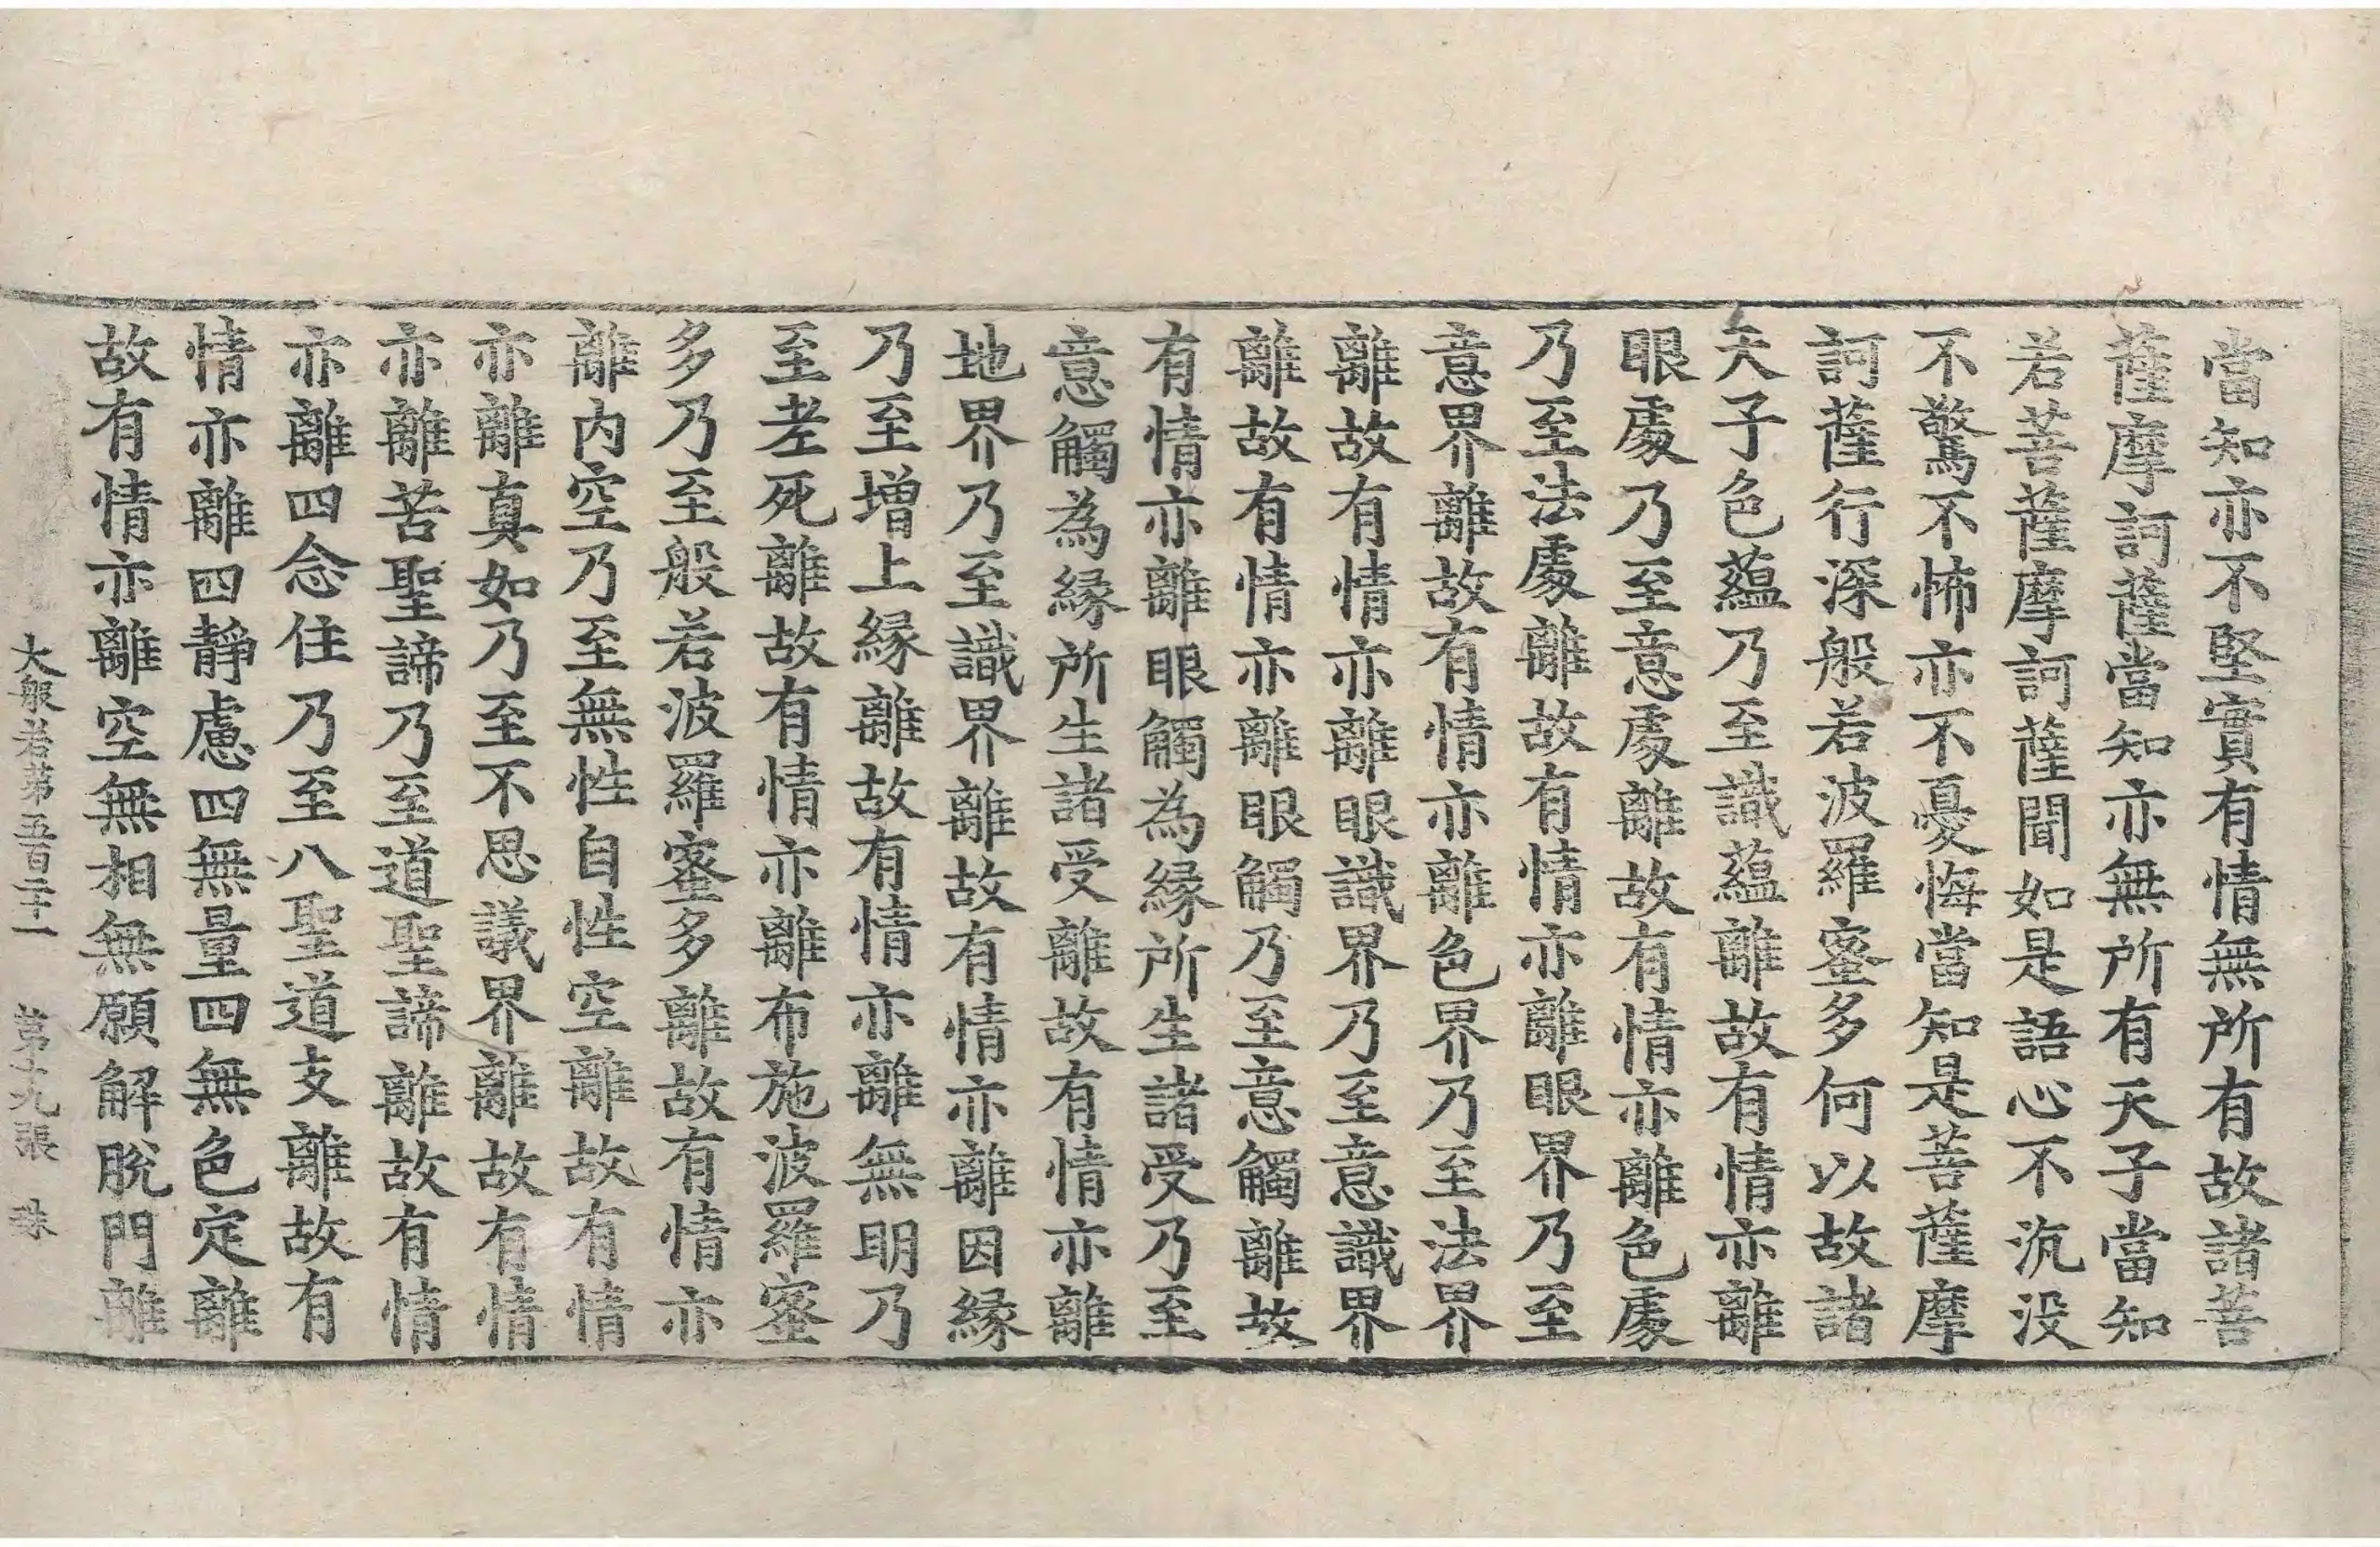 當知亦不堅實有情無所有故諸菩
薩摩訶薩當知亦無所有天子當知
若菩薩摩訶薩聞如是語心不沉没
不驚不怖亦不憂悔當知是菩薩摩
訶薩行深般若波羅蜜多何以故諸
天子色蘊乃至識蘊離故有情亦離
眼處乃至意處離故有情亦離色處
乃至法處離故有情亦離眼界乃至
意界離故有情亦離色界乃至法界
離故有情亦離眼識界乃至意識界
離故有情亦離眼觸乃至意觸離故
有情亦離眼觸為緣所生諸受乃至
意觸為緣所生諸受離故有情亦離
地界乃至識界離故有情亦離因緣
乃至增上緣離故有情亦離無明乃
至老死離故有情亦離布施波羅蜜
多乃至般若波羅蜜多離故有情亦
離内空乃至無性自性空離故有情
亦離真如乃至不思議界離故有情
亦離苦聖諦乃至道聖諦離故有情
亦離四念住乃至八聖道支離故有
情亦離四靜慮四無量四無色定離
故有情亦離空無相無願解脫門離
大般若第五百二十一 第十九張 珠